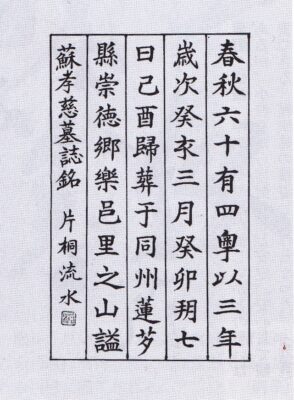 春秋六十有四粤以三年
歳次癸亥三月癸卯朔七
日己酉歸葬于同州蓮芍
縣崇徳郷樂邑里之山謚
蘇孝慈墓誌銘 片桐流水